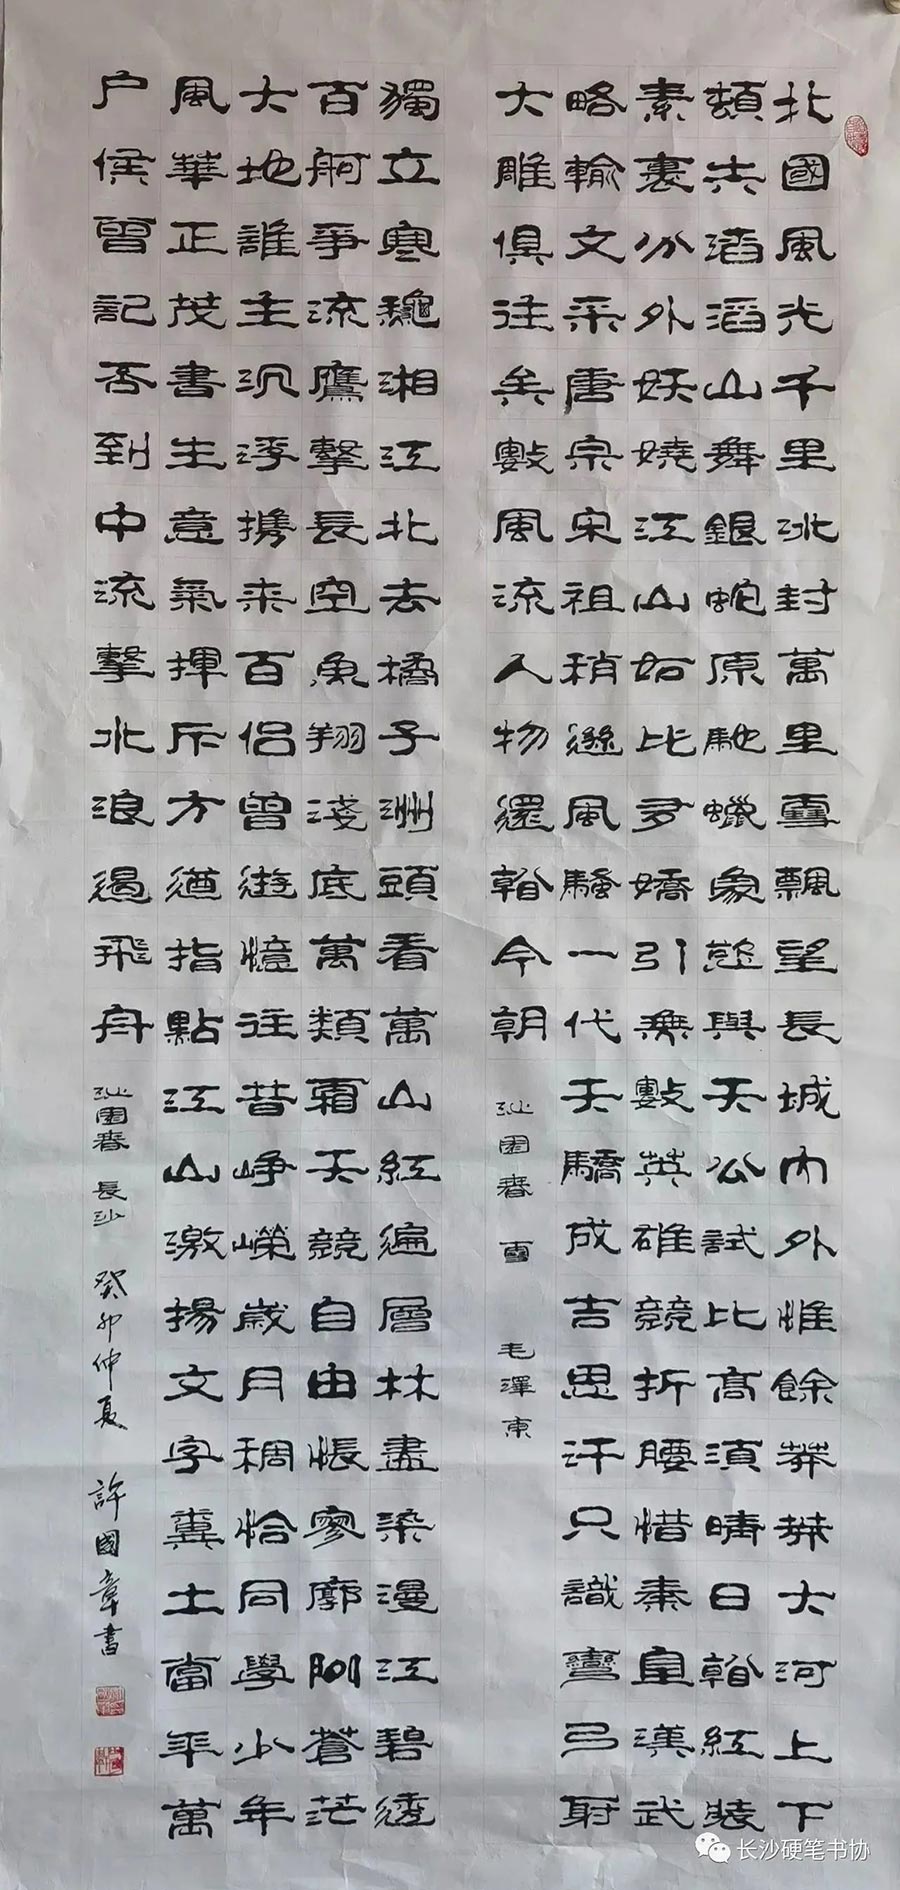 北國風光千里冰封萬里雪飄望長城內外惟餘莽莽大河上下
頓失滔滔山舞銀蛇原馳蠟象欲與天公試比高須晴日看紅裝
素裹分外妖嬈江山如此多嬌引無數英雄競折腰惜秦皇漢武
略輸文采唐宗宋祖稍遜風騷一代天驕成吉思汗只識彎弓射
大雕俱往矣數風流人物還看今朝 沁園春 雪 毛澤東
獨立寒龝湘江北去橘子洲頭看萬山紅遍層林盡染漫江碧透
百舸爭流鷹擊長空魚翔淺底萬類霜天競自由悵寥廓問蒼茫
大地誰主沉浮携來百侶曾遊憶往昔崢嶸歲月稠恰同學少年
風華正茂書生意氣揮斥方遒指點江山激揚文字糞土當年萬
户侯曾記否到中流擊水浪遏飛舟 沁園春 長沙 癸卯仲夏 許國章書
长沙硬笔书协